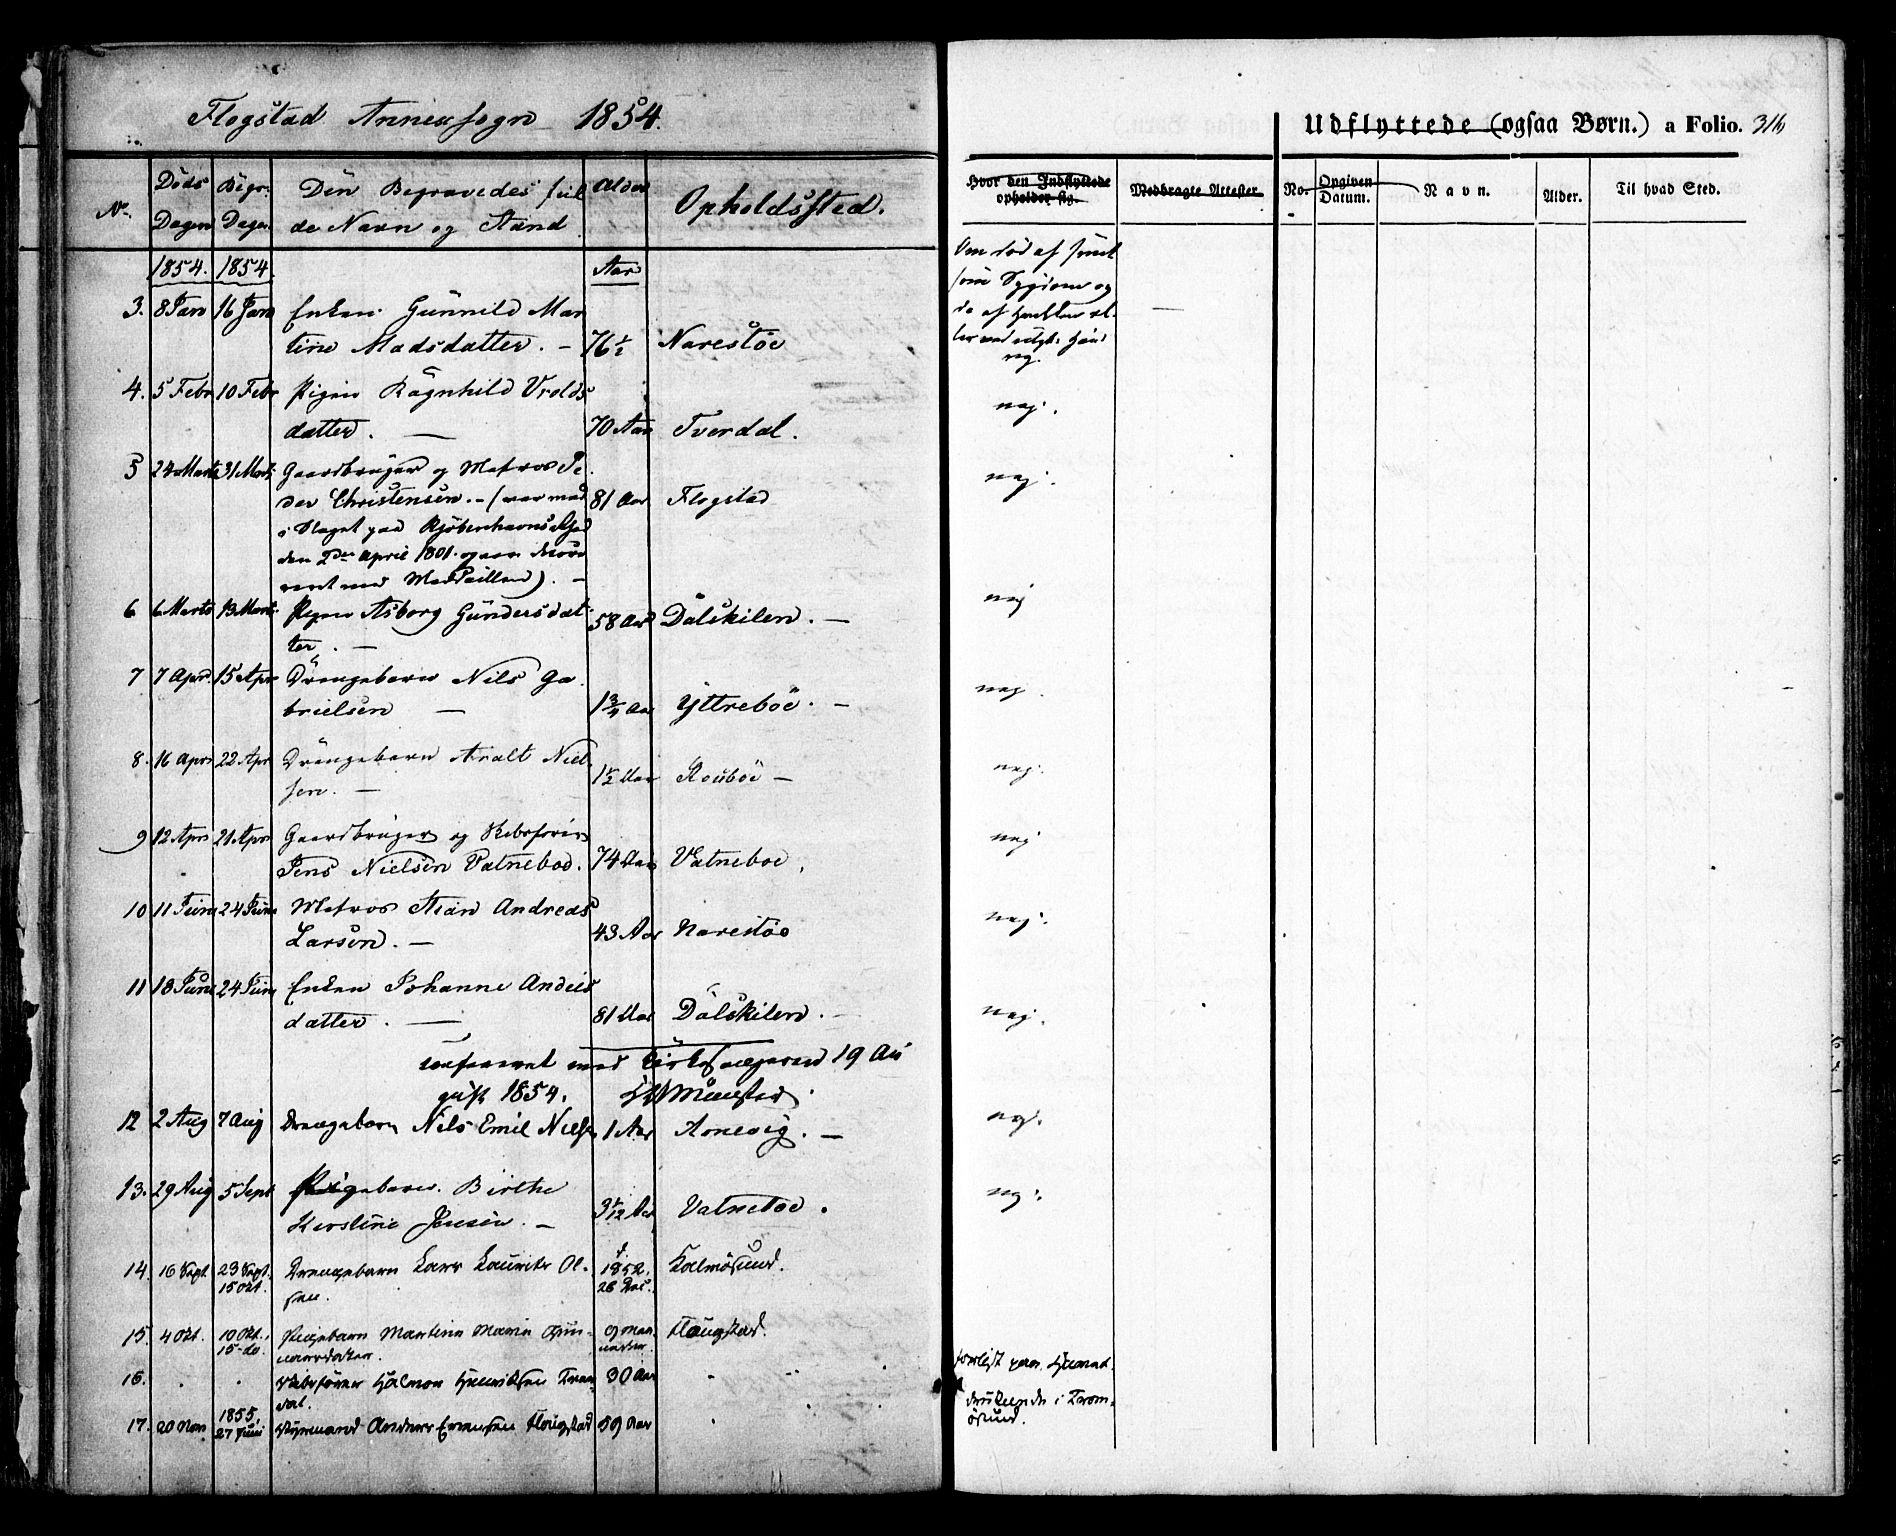 Flogstad Annexsogn 1854.
Udflyttede (ogsaa Børn.) a Folio. 316
No. Døds Dagen Begr: Dagen Den Begravedes fulde Navn og Stand Alder Opholdssted.
Hvor den Indflyttede opholder sig. Medbragte Attester No. Opgiven Datum. Navn. Alder. Til hvad Sted.
1854. 1854 Aar
Om død af smitsom Sygdom og
3. 8 Jan 16 Jan Enken Gunnild Mar
tine Madsdatter. – 76½ Narestöe
4. 5 Febr 10 Febr Pigen Ragnhild Vrolds
datter. — 70 Aar Tverdal. nej.
5 24 Marts 31 Marts Gaardbruger og Matros Pe
der Christensen. – (var med 81 Aar Flogstad nej.
i Slaget paa Kjöbenhavns Rhed
den 2den April 1801. og
med Medaillen). –
6 6 Marts 13 Marts Pigen Asborg Gundersdat
ter. — 58 Aar Dalskilen. — nej
7 7 Apr. 15 Apr Drengebarn Nils Ga
brielsen — 1¾ Aar Yttreböe. – nej.
8. 16 Apr 22 Apr Drengebarn Aralt Niel
sen. — 1½ Aar – nej.
9 12 Apr 21 Apr Gaardbruger og Skibsfører
Jens Nielsen Vatneboe. 74 Aar Vatneboe. nej
10 11 Juni 24 Juni Matros Stian Andreas
Larsen. – 43 Aar Narestöe nej.
11 18 Juni 24 Juni Enken Johanne
datter. — 81 Aar Dalskilen. nej.
med 19 Au
gust 1854.
12 2 Aug 7 Aug Drengebarn Nils Emil Niels 1 Aar Arnevig. – nej.
13. 29 Aug 5 Sept Pigebarn Birthe
Kirstine Jensen. – 3 1/12 Aar Vatneboe. nej.
14. 16 Sept. 23 Sept. Drengebarn Lars Laurits Ol- 1852. Kalmösund.
15 Okt. sen. 26
15. 4 Okt. 10 Okt., Pigebarn Martine Marie Gun- 9 Maa- Flaugstad.
15. do. narsdatter. neder
16. Skibsfører Hjalmar Henriksen Tver- 30 Aar forlist
dal.
17. 20 Nov 1855, 27 Juni Styrmand Anders Evensen Flaugstad 59 Aar druknede i Trom-
ösund.